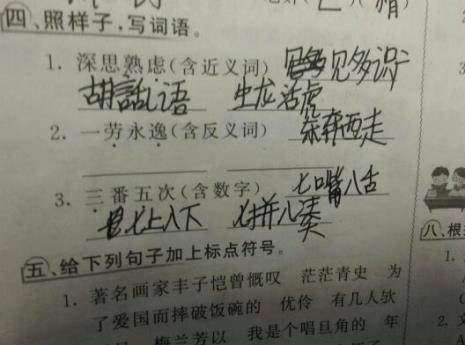 四、照样子，写词语。
1. 深思熟虑(含近义词) 见多识广
胡言乱语 生龙活虎
2. 一劳永逸(含反义词) 东奔西走
3. 三番五次(含数字) 七嘴八舌
七上八下 七拼八凑
五、给下列句子加上标点符号。
1. 著名画家丰子恺曾慨叹 茫茫青史 为
了爱国而摔破饭碗的 优伶 有几人欤
梅兰芳以 我是个唱旦角的 年
八、根
1.
2. 文